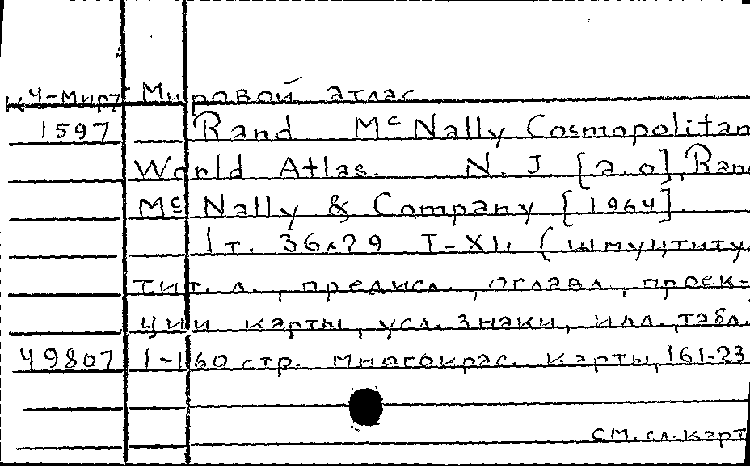 К4-Мирт Мировой атлас
1597 Rand McNally Cosmopolitan
World Atlas. N. J [a.o], Rand
McNally & Company [1964].
1т. 36х29 I-XII (шмуцтиту
тит. л., предисл., оглавл., проек-
ции карты, усл. знаки, илл., табл.
49807 1-160 стр. многокрас. карты, 161-23
см. сл. карт